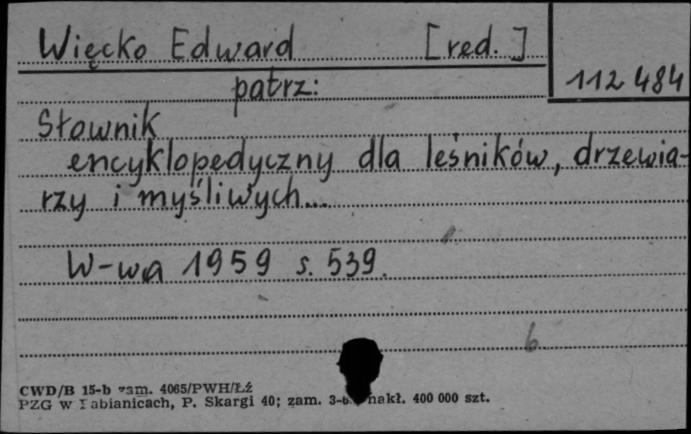 Więcko Edward [red.]
112 484
patrz:
Słownik
encyklopedyczny dla leśników, drzewia-
rzy i myśliwych...
W-wa 1959 s. 539.
6
CWD/B 15-b zam. 4065/PWH/Łź
PZG w Pabianicach, P. Skargi 40; zam. 3-6 nakł. 400 000 szt.